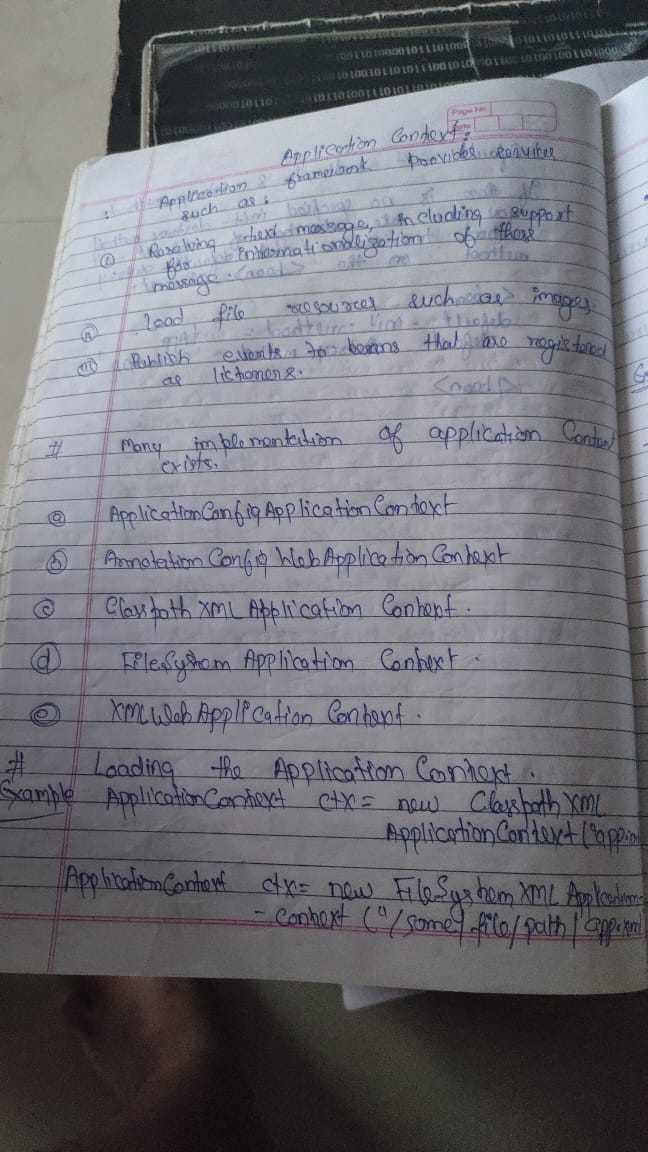 Page No.
Date
Application Context:
Application framework provides services
such as:
(i) Resolving text message, including support
for internationalization of those
message.
(ii) load file resources such as images.
(iii) Publish events to beans that are registered
as listeners.
# Many implementation of application Context
exists.
(a) ApplicationConfigApplicationContext
(b) AnnotationConfig WebApplicationContext
(c) Classpath XML Application Context.
(d) FileSystem Application Context.
(e) XMLWebApplication Context.
# Loading the Application Context.
Example ApplicationContext ctx = new Classpath XML
ApplicationContext ("app.
ApplicationContext ctx = new FileSystem XML Application
- Context ("/some/file/path/app.xml